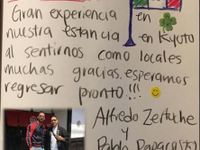 Gran experiencia en
nuestra estancia en Kyoto
al sentirnos como locales
muchas gracias, esperamos
regresar pronto!!!
Alfredo Zertuche
y
Pablo